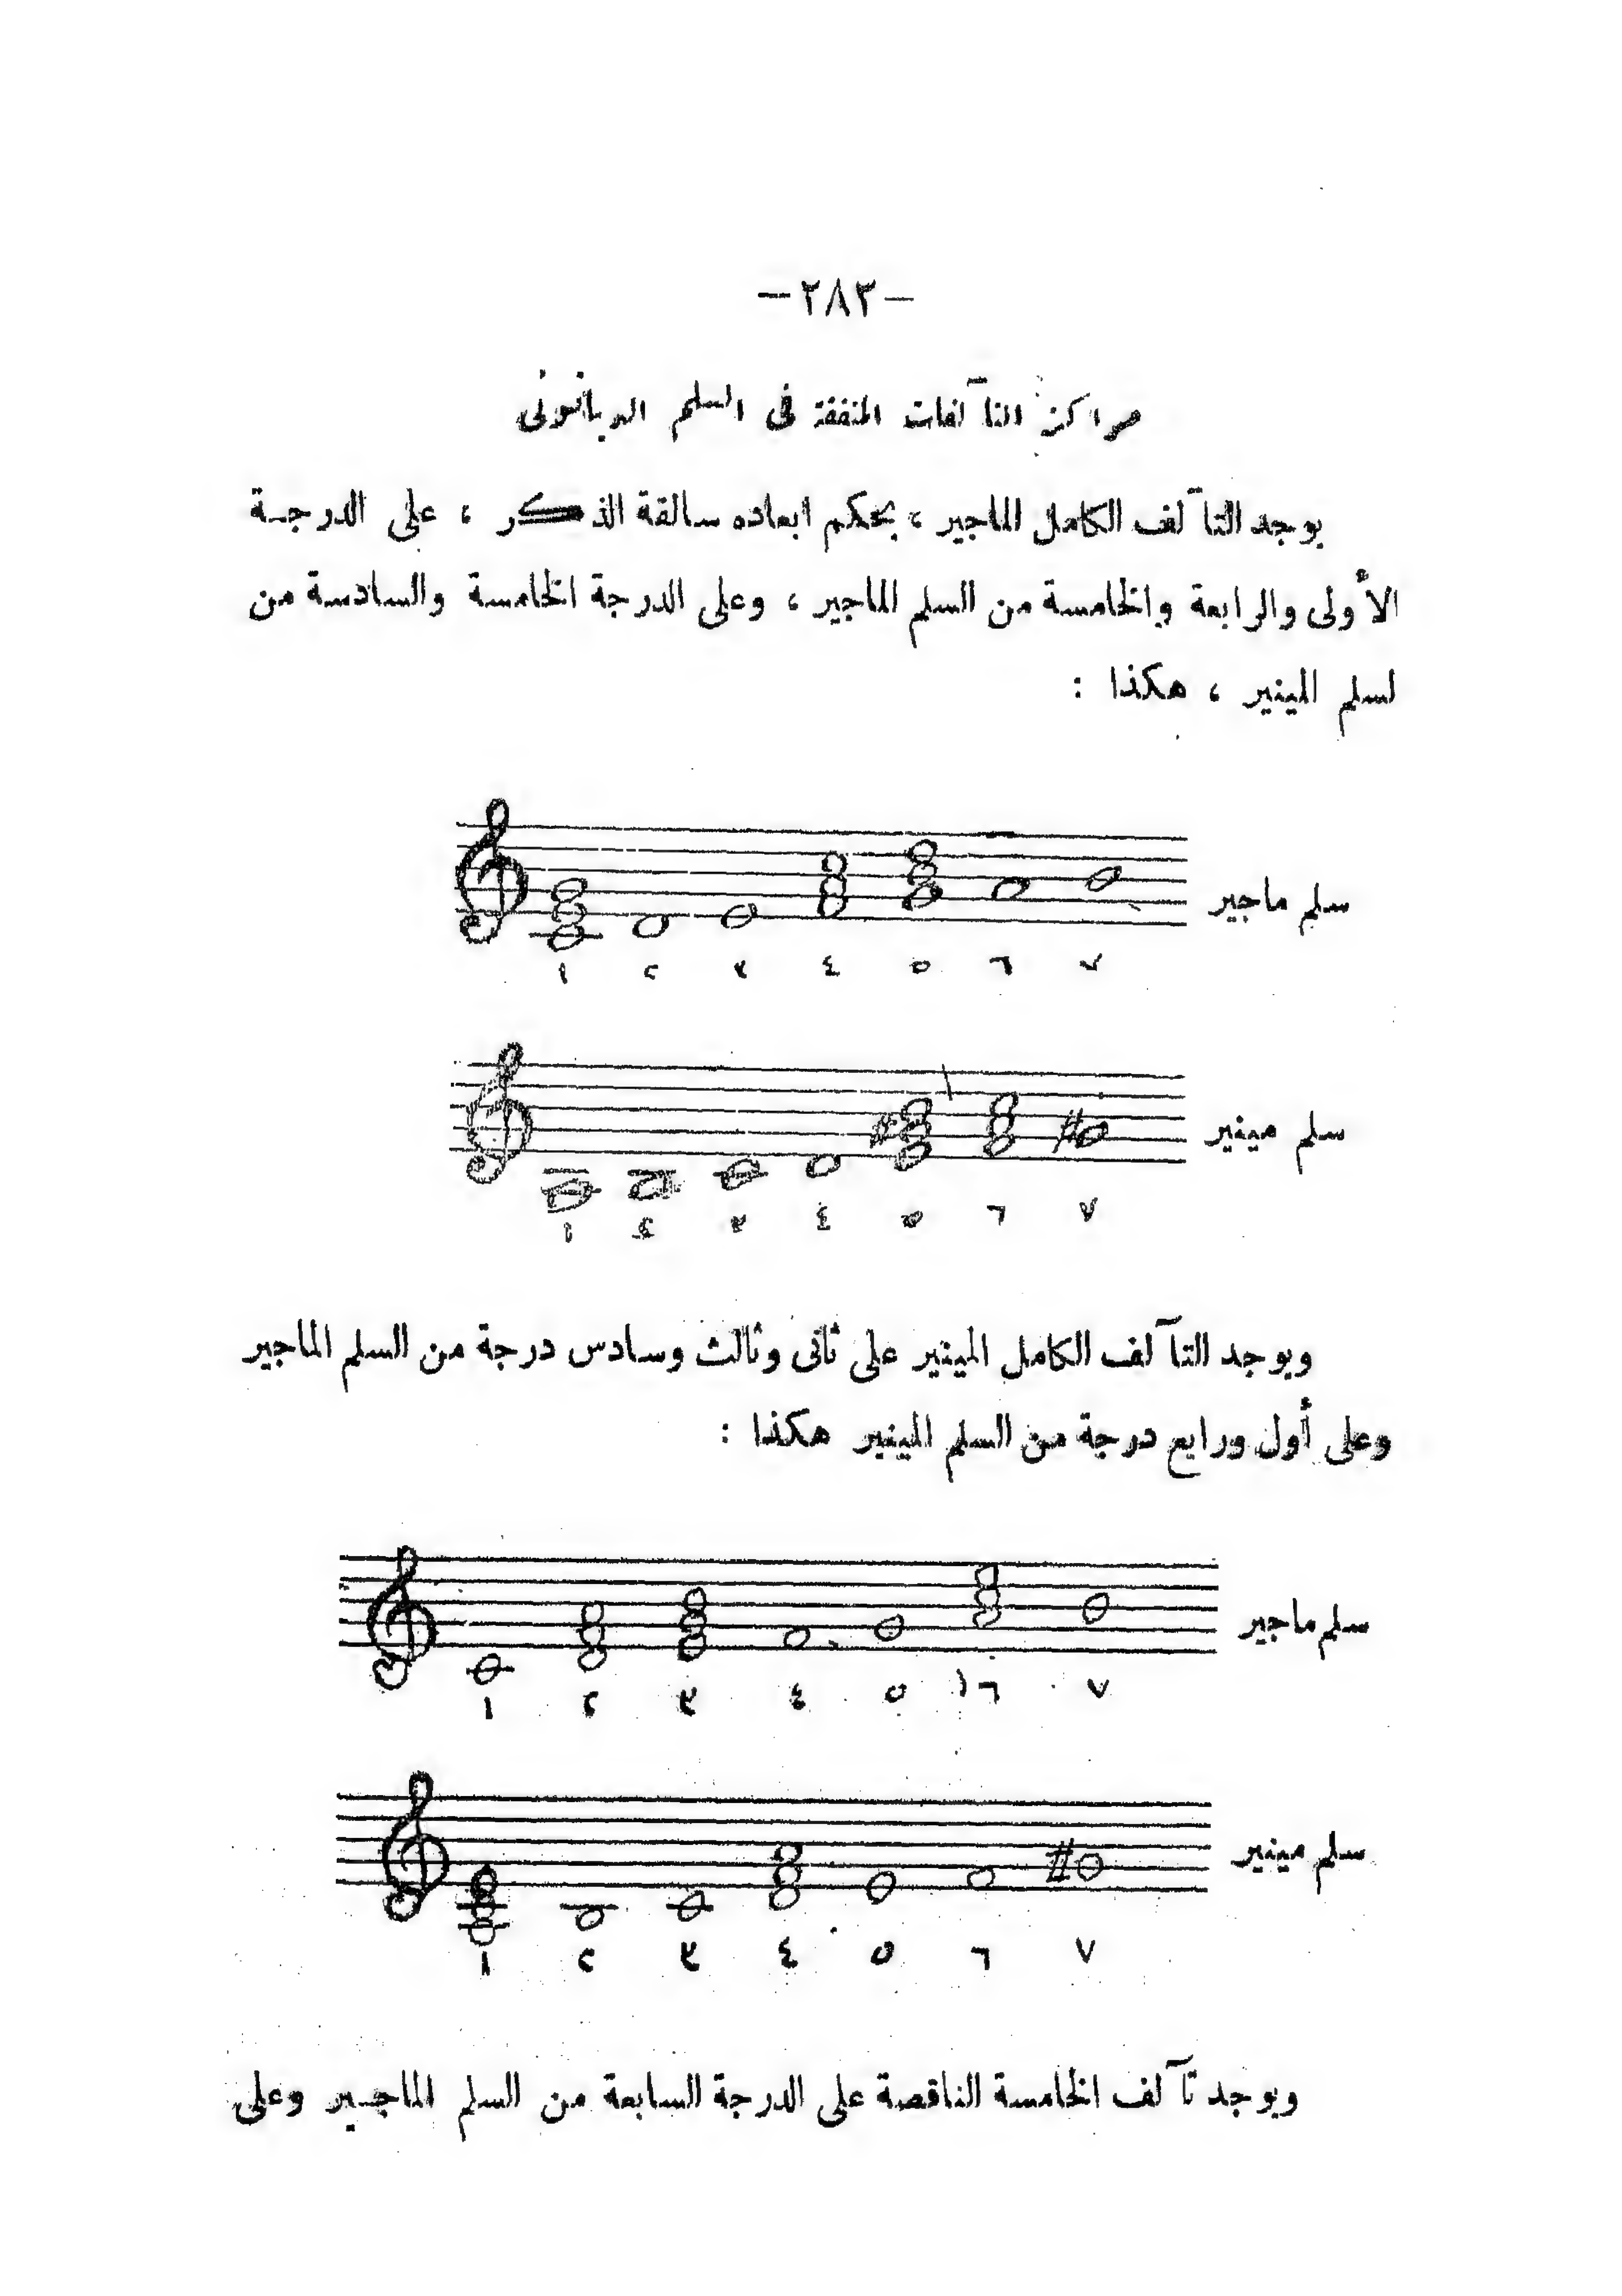 –٢٨٣–
مراكز التآلفات المتفقة فى السلم الدياتونى
يوجد التآلف الكامل الماجير ، بحكم ابعاده سالفة الذكر ، على الدرجة
الأولى والرابعة والخامسة من السلم الماجير ، وعلى الدرجة الخامسة والسادسة من
لسلم المينير ، هكذا :
سلم ماجير
١ ٢ ٣ ٤ ٥ ٦ ٧
سلم مينير
١ ٢ ٣ ٤ ٥ ٦ ٧
ويوجد التآلف الكامل المينير على ثانى وثالث وسادس درجة من السلم الماجير
وعلى أول ورابع درجة من السلم المينير هكذا :
سلم ماجير
١ ٢ ٣ ٤ ٥ ٦ ٧
سلم مينير
١ ٢ ٣ ٤ ٥ ٦ ٧
ويوجد تآلف الخامسة الناقصة على الدرجة السابعة من السلم الماجير وعلى